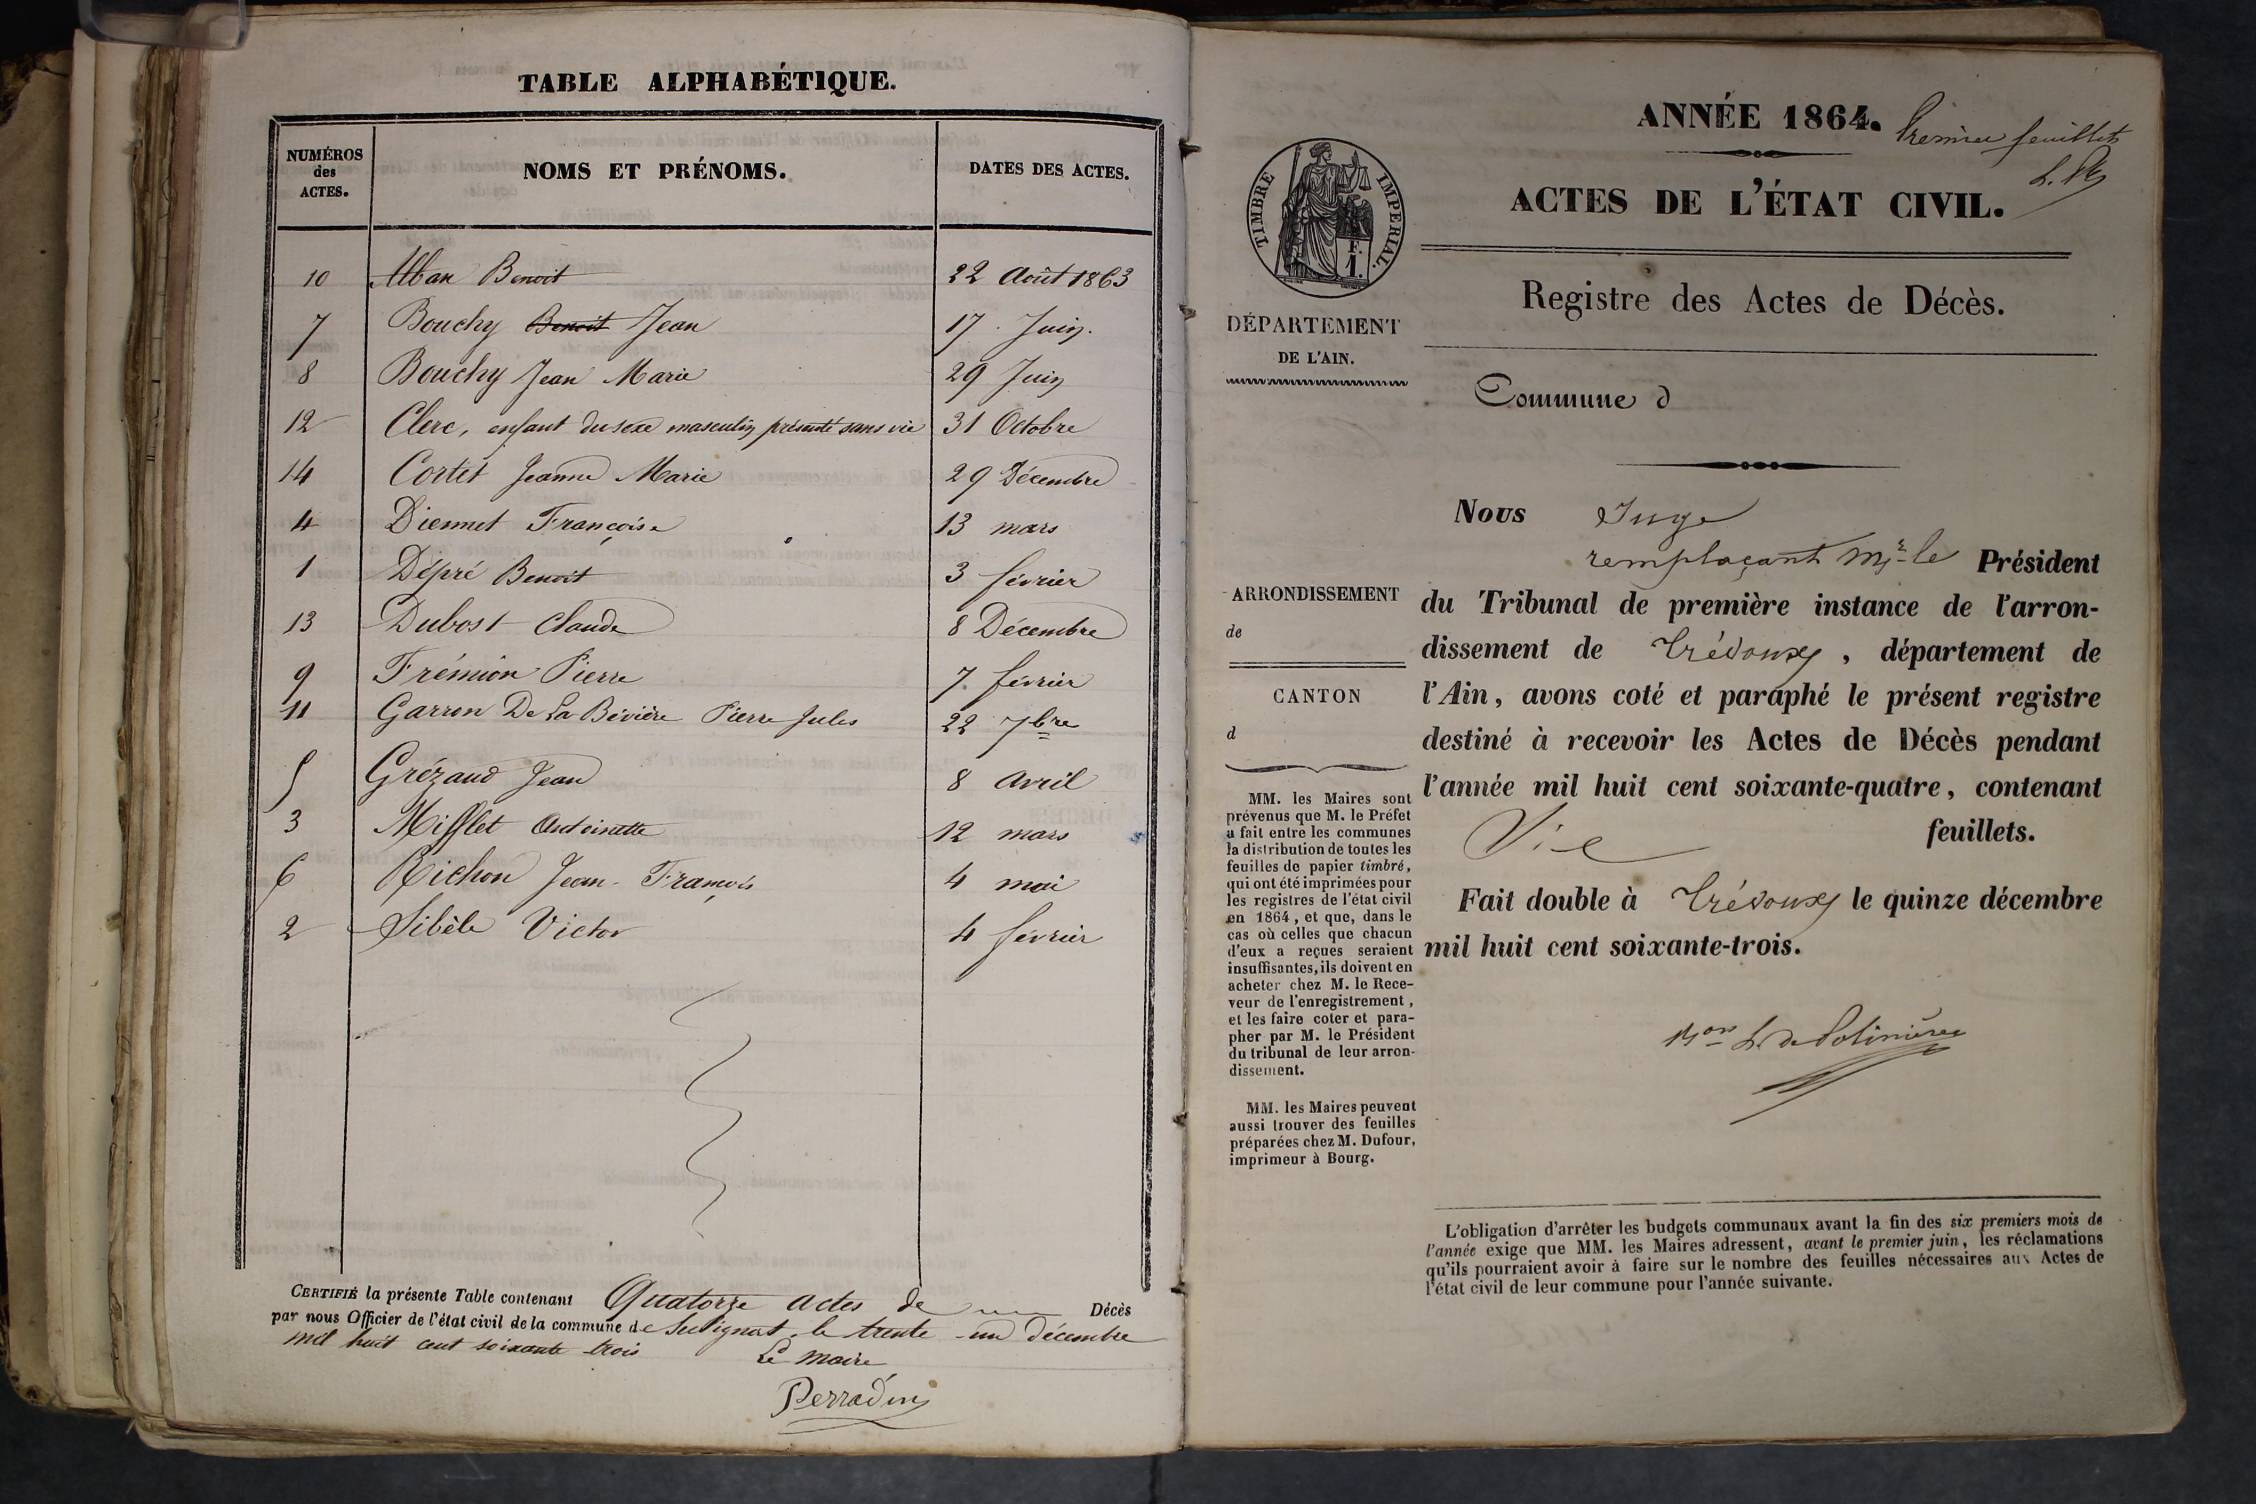 TABLE ALPHABÉTIQUE.
NUMÉROS des ACTES. NOMS ET PRÉNOMS. DATES DES ACTES.
10 Alban Benoit 22 Août 1863
7 Bouchy Benoit Jean 17 Juin.
8 Bouchy Jean Marie 29 Juin
12 Clerc, enfant du sexe masculin présenté sans vie 31 Octobre
14 Cortet Jeanne Marie 29 Décembre
4 Diennet Françoise 13 mars
1 Dépré Benoit 3 février
13 Dubost Claude 8 Décembre
9 Frémion Pierre 7 février
11 Garron De La Bévière Pierre Jules 22 7bre
5 Grézaud Jean 8 avril
3 Mifflet Antoinette 12 mars
6 Richon Jean-François 4 mai
2 Sibèle Victor 4 février
CERTIFIÉ la présente Table contenant Quatorze actes de Décès
par nous Officier de l'état civil de la commune de le trente un décembre
mil huit cent soixante trois
Le Maire
Perradin
ANNÉE 1864.
Premier feuillet
ACTES DE L'ÉTAT CIVIL.
TIMBRE IMPERIAL.
F.
1.
Registre des Actes de Décès.
DÉPARTEMENT
DE L'AIN.
Commune d
ARRONDISSEMENT
de
CANTON
d
MM. les Maires sont
prévenus que M. le Préfet
a fait entre les communes
la distribution de toutes les
feuilles de papier timbré,
qui ont été imprimées pour
les registres de l'état civil
en 1864, et que, dans le
cas où celles que chacun
d'eux a reçues seraient
insuffisantes, ils doivent en
acheter chez M. le Rece-
veur de l'enregistrement,
et les faire coter et para-
pher par M. le Président
du tribunal de leur arron-
dissement.
MM. les Maires peuvent
aussi trouver des feuilles
préparées chez M. Dufour,
imprimeur à Bourg.
Nous Juge
remplaçant Mr le Président
du Tribunal de première instance de l'arron-
dissement de Trévoux, département de
l'Ain, avons coté et paraphé le présent registre
destiné à recevoir les Actes de Décès pendant
l'année mil huit cent soixante-quatre, contenant
feuillets.
Fait double à Trévoux le quinze décembre
mil huit cent soixante-trois.
L'obligation d'arrêter les budgets communaux avant la fin des six premiers mois de
l'année exige que MM. les Maires adressent, avant le premier juin, les réclamations
qu'ils pourraient avoir à faire sur le nombre des feuilles nécessaires aux Actes de
l'état civil de leur commune pour l'année suivante.